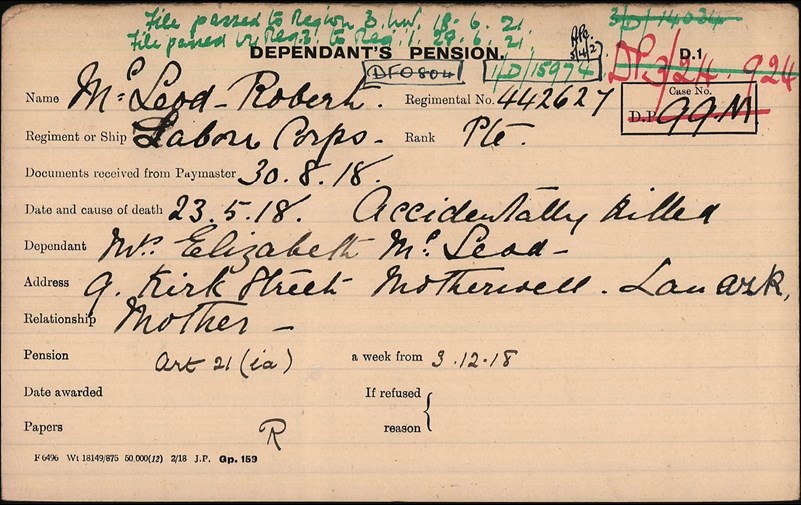 File passed to Region 3. 18.6.21.
File passed by Reg.3. to Reg. 1. 28.6.21.
3/D/14034
DEPENDANT'S PENSION.
D.1
DFO804
1/D/15974
DP3/24.924
Name McLeod - Robert.
Regimental No. 442627
Case No.
D.P. 99M.
Regiment or Ship Labour Corps -
Rank Pte.
Documents received from Paymaster 30.8.18.
Date and cause of death 23.5.18. Accidentally killed
Dependant Mrs. Elizabeth McLeod -
Address 9. Kirk Street Motherwell. Lanark.
Relationship Mother -
Pension Art 21 (ia) a week from 3.12.18
Date awarded If refused
Papers R reason
F 6496 Wt 18149/875 50,000(12) 2/18 J.P. Gp. 159